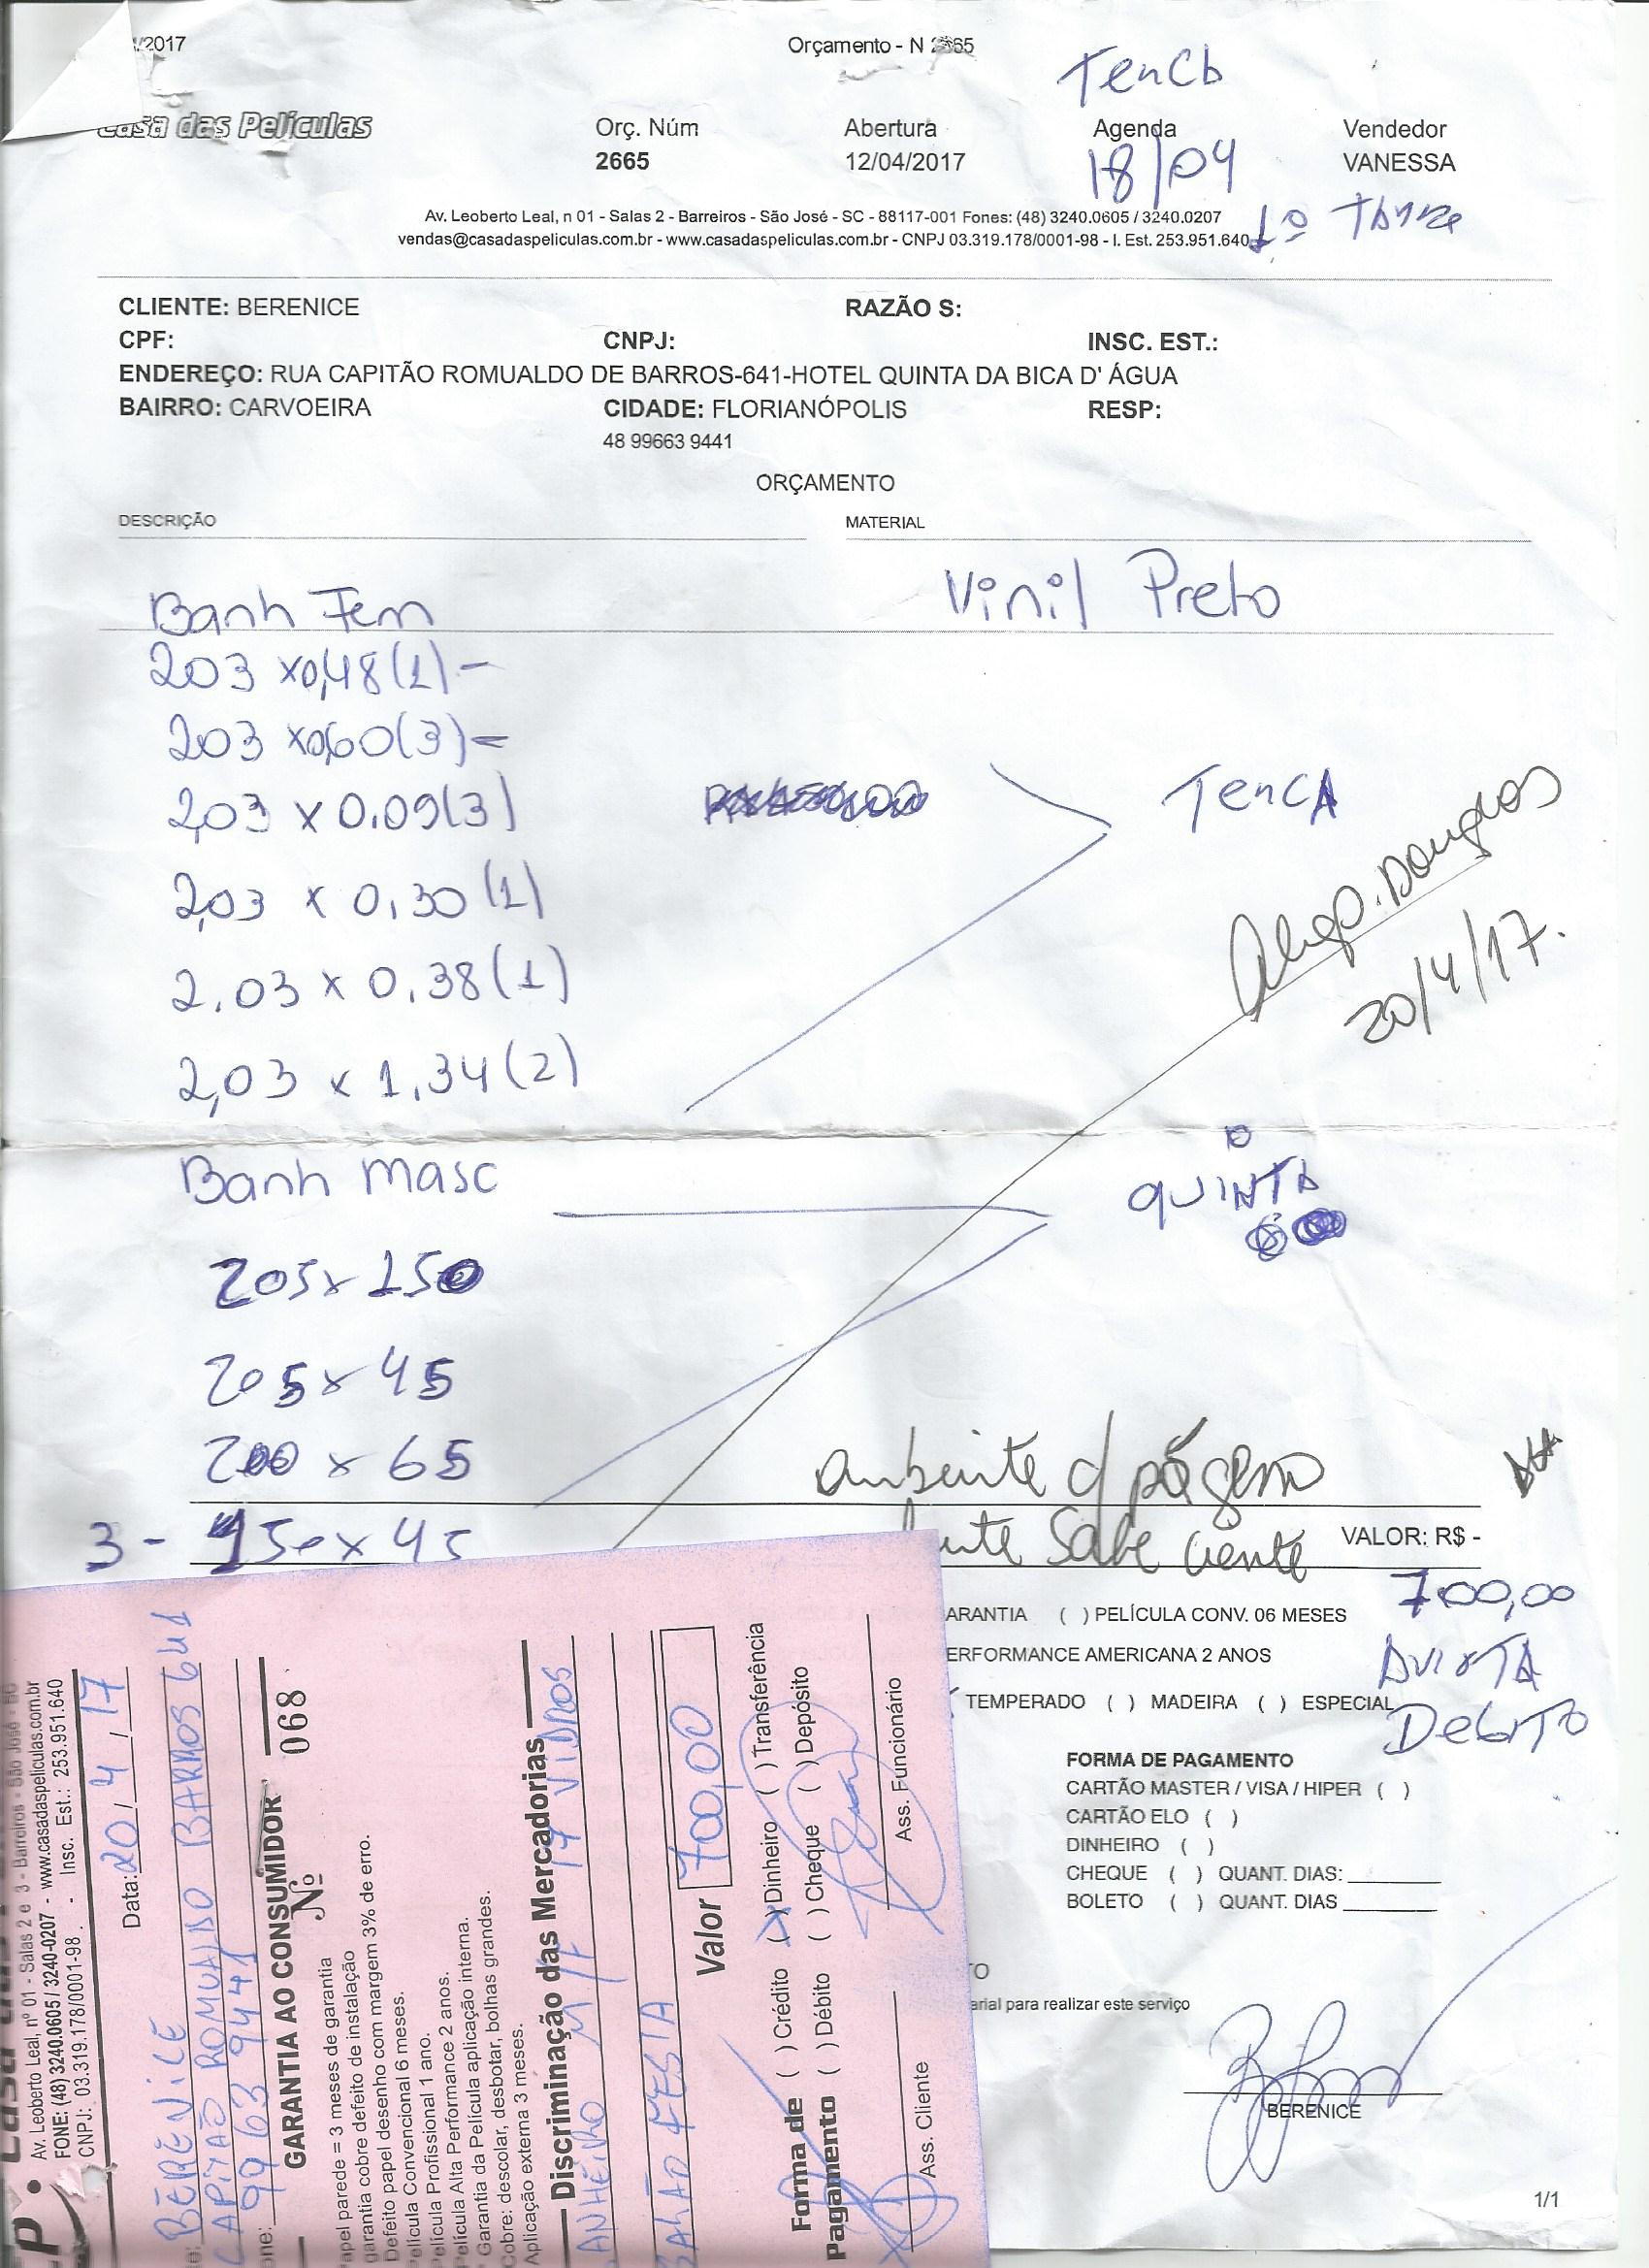 /2017
Orçamento - N 2665
TenCb
Casa das Películas
Orç. Núm
2665
Abertura
12/04/2017
Agenda
18/04
Vendedor
VANESSA
Av. Leoberto Leal, n 01 - Salas 2 - Barreiros - São José - SC - 88117-001 Fones: (48) 3240.0605 / 3240.0207
vendas@casadaspeliculas.com.br - www.casadaspeliculas.com.br - CNPJ 03.319.178/0001-98 - I. Est. 253.951.640
CLIENTE: BERENICE
RAZÃO S:
CPF:
CNPJ:
INSC. EST.:
ENDEREÇO: RUA CAPITÃO ROMUALDO DE BARROS-641-HOTEL QUINTA DA BICA D' ÁGUA
BAIRRO: CARVOEIRA
CIDADE: FLORIANÓPOLIS
RESP:
48 99663 9441
ORÇAMENTO
DESCRIÇÃO
MATERIAL
Banh Fem
Vinil Preto
203 x0,48(1)-
203 x0,60(3)-
2,03 x 0,09(3)
TencA
2,03 x 0,30(1)
2,03 x 0,38(1)
20/4/17.
2,03 x 1,34(2)
Banh Masc
QUINTA
205x150
205x45
200 x 65
ambeinte c/ pó gesso
3- 150x45
Sabe ciente
VALOR: R$ -
700,00
ARANTIA ( ) PELÍCULA CONV. 06 MESES
ERFORMANCE AMERICANA 2 ANOS
AVISTA
TEMPERADO ( ) MADEIRA ( ) ESPECIAL
Debito
FORMA DE PAGAMENTO
CARTÃO MASTER / VISA / HIPER ( )
CARTÃO ELO ( )
DINHEIRO ( )
CHEQUE ( ) QUANT. DIAS:
BOLETO ( ) QUANT. DIAS
TO
arial para realizar este serviço
BERENICE
1/1
Av. Leoberto Leal, nº 01 - Salas 2 e 3 - Barreiros - São José
FONE: (48) 3240.0605 / 3240-0207 - www.casadaspeliculas.com.br
CNPJ: 03.319.178/0001-98 . - Insc. Est.: 253.951.640
Data: 20/4/17
BERENICE
CAPITÃO ROMUALDO BARROS 641
one: 9963 9441
GARANTIA AO CONSUMIDOR
Nº 068
apel parede = 3 meses de garantia
garantia cobre defeito de instalação
Defeito papel desenho com margem 3% de erro.
elícula Convencional 6 meses.
elícula Profissional 1 ano.
elícula Alta Performance 2 anos.
Garantia da Película aplicação interna.
Cobre: descolar, desbotar, bolhas grandes.
Aplicação externa 3 meses.
Discriminação das Mercadorias
ANHEIRO M/F 17 VIDROS
FESTA
Valor 700,00
Forma de Pagamento
( ) Crédito (X) Dinheiro ( ) Transferência
( ) Débito ( ) Cheque ( ) Depósito
Ass. Cliente
Ass. Funcionário